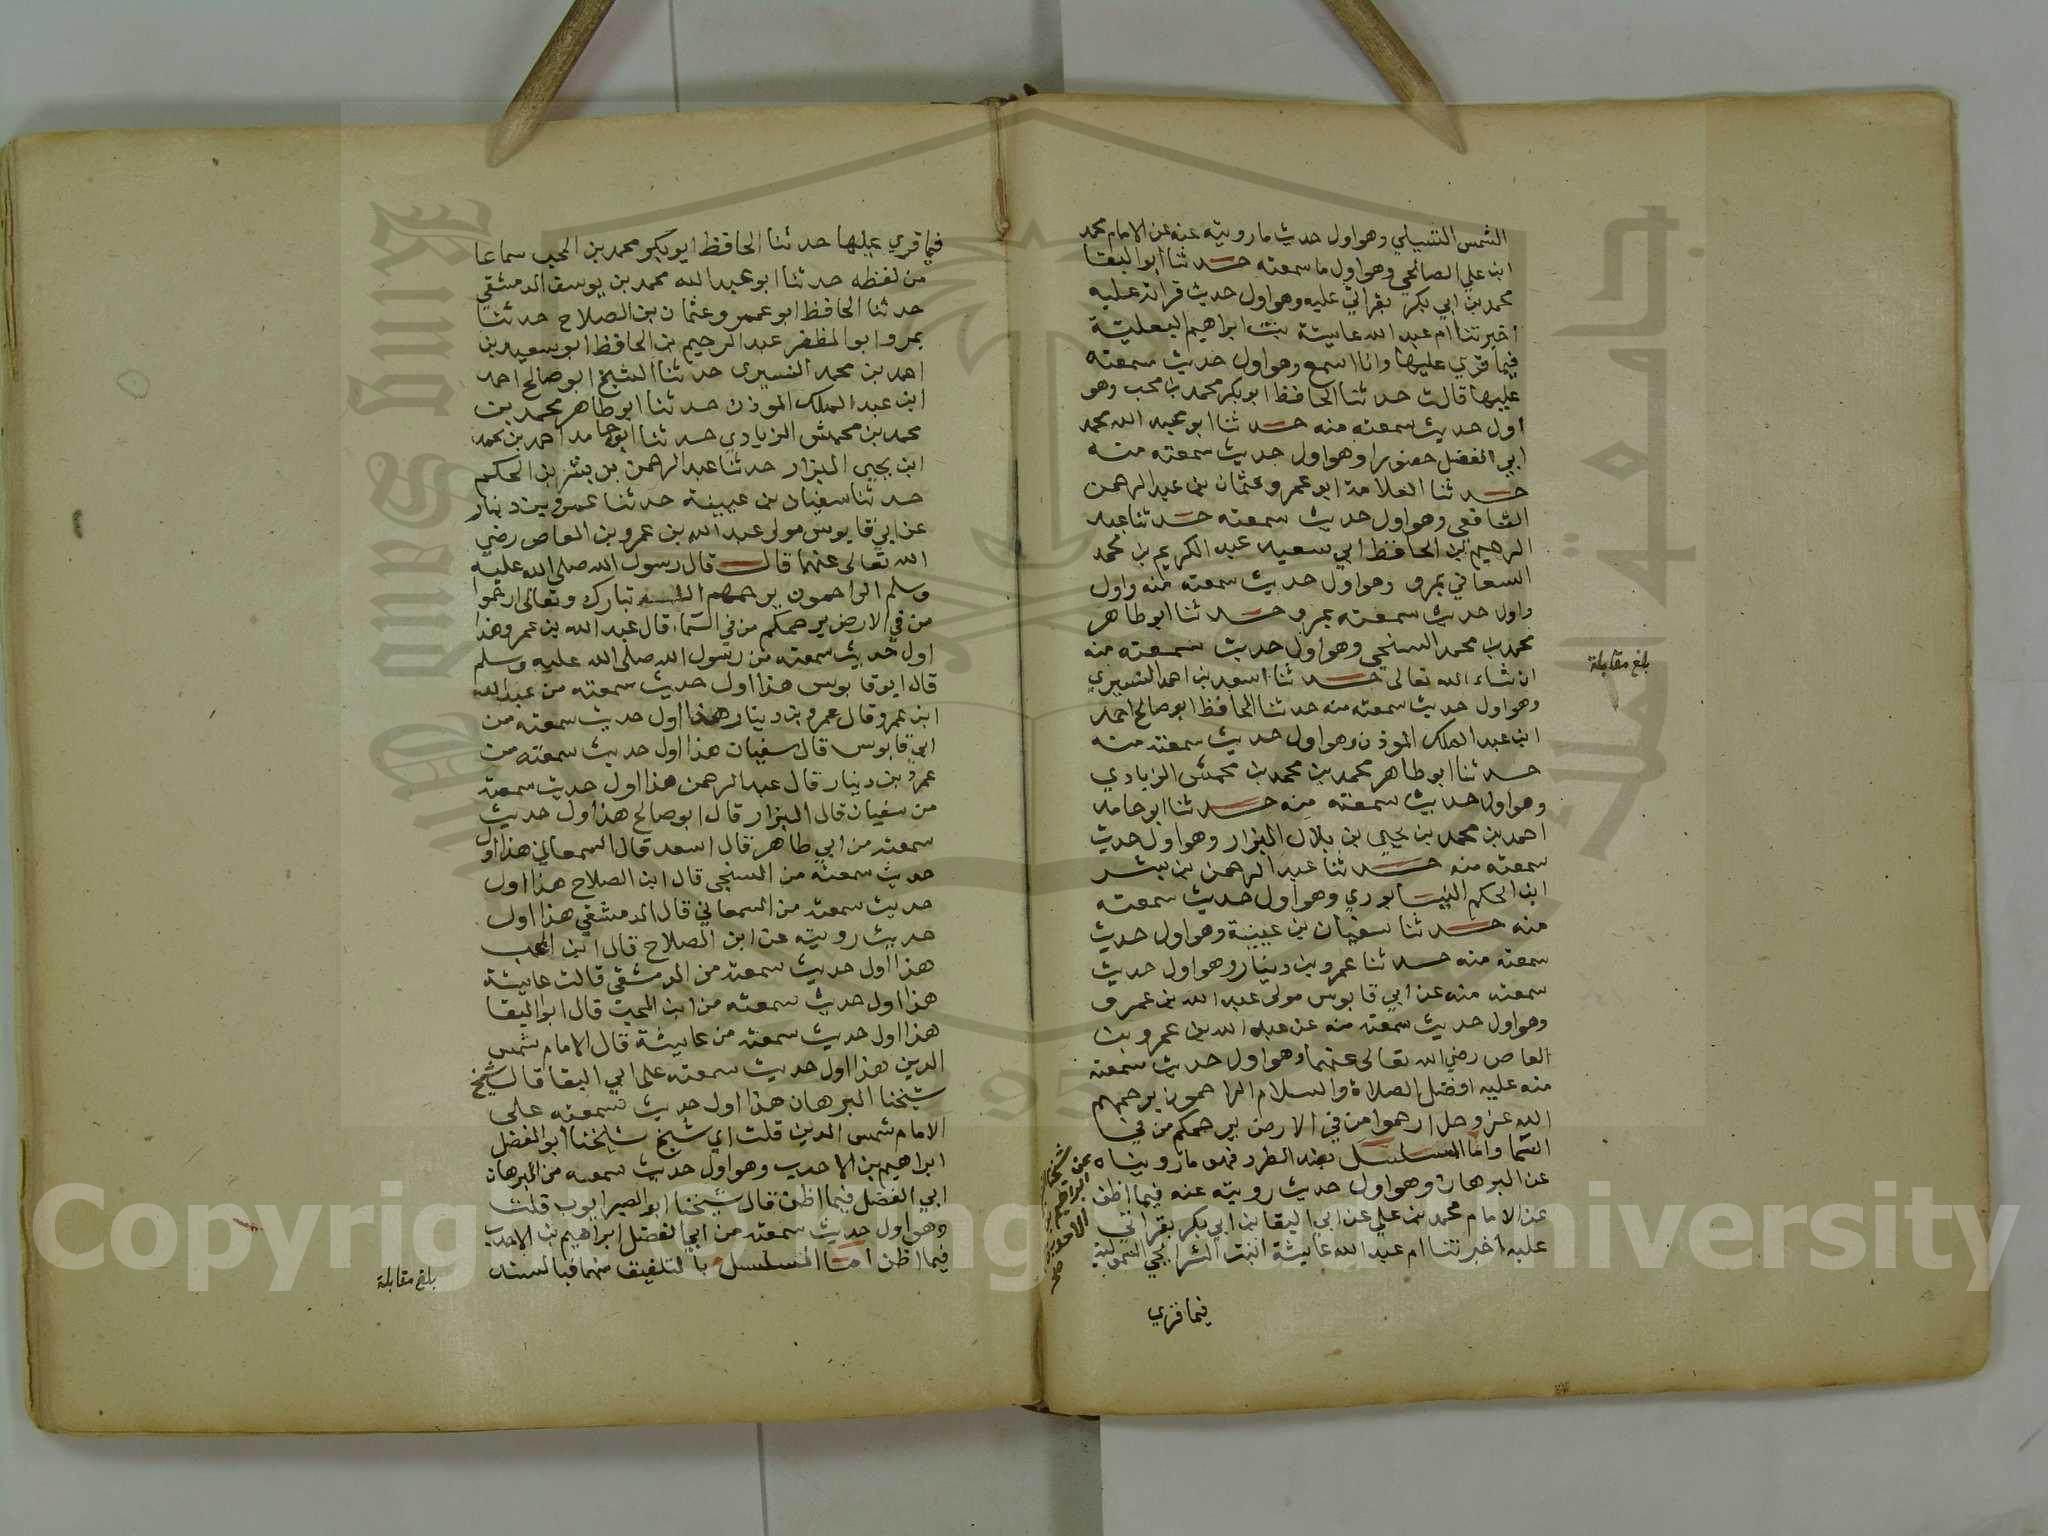 الشمس التتبيلي وهو اول حديث ما رويته عنه عن الامام محمد
ابن علي الصالحي وهو اول ما سمعته حدثنا ابو البقا
محمد بن ابي بكر بقراتي عليه وهو اول حديث قراته عليه
اخبرتنا ام عبد الله عايشة بنت ابراهيم البعلية
فيما قري عليها وانا اسمع وهو اول حديث سمعته
عليها قالت حدثنا الحافظ ابو بكر محمد بن محب وهو
اول حديث سمعته منه حدثنا ابو عبد الله محمد
ابي الفضل حضورا وهو اول حديث سمعته منه
حدثنا العلامة ابو عمرو عثمان بن عبد الرحمن
الشافعي وهو اول حديث سمعته حدثنا عبد
الرحيم بن الحافظ ابي سعيد عبد الكريم بن محمد
السمعاني بمرو وهو اول حديث سمعته منه واول
واول حديث سمعته بمرو حدثنا ابو طاهر
محمد بن محمد السنجي وهو اول حديث سمعته منه
ان شاء الله تعالى حدثنا اسعد بن احمد النسيري
وهو اول حديث سمعته منه حدثنا الحافظ ابو صالح احمد
ابن عبد الملك الموذن وهو اول حديث سمعته منه
حدثنا ابو طاهر محمد بن محمد بن محمش الزيادي
وهو اول حديث سمعته منه حدثنا ابو حامد
احمد بن محمد بن يحيى بن بلال البزار وهو اول حديث
سمعته منه حدثنا عبد الرحمن بن بشر
ابن الحكم النيسابوري وهو اول حديث سمعته
منه حدثنا سفيان بن عيينة وهو اول حديث
سمعته منه حدثنا عمرو بن دينار وهو اول حديث
سمعته منه عن ابي قابوس مولى عبد الله بن عمرو
وهو اول حديث سمعته منه عن عبد الله بن عمرو بن
العاص رضي الله تعالى عنهما وهو اول حديث سمعته
منه عليه افضل الصلاة والسلام الراحمون يرحمهم
الله عز وجل ارحموا من في الارض يرحمكم من في
السما واما المسلسل بهذه الطرد فهو ما رويناه
عن البرهان وهو اول حديث رويته عنه فيما اظن
عن الامام محمد بن علي عن ابي البقا بن ابي بكر بقراتي
عليه اخبرتنا ام عبد الله عايشة ابنت الشرايحي
فيما قري
بلغ مقابلة
شيخنا
عن ابراهيم
الاحدب صح
فيما قري عليها حدثنا الحافظ ابو بكر محمد بن المحب سماعا
من لفظه حدثنا ابو عبد الله محمد بن يوسف الدمشقي
حدثنا الحافظ ابو عمرو عثمان بن الصلاح حدثنا
بمرو ابو المظفر عبد الرحيم بن الحافظ ابو سعيد بن
احمد بن محمد النسيرى حدثنا الشيخ ابو صالح احمد
ابن عبد الملك الموذن حدثنا ابو طاهر محمد بن
محمد بن محمش الزيادي حدثنا ابو حامد احمد بن محمد
ابن يحيى البزار حدثنا عبد الرحمن بن بشر بن الحكم
حدثنا سفيان بن عيينة حدثنا عمرو بن دينار
عن ابي قابوس مولى عبد الله بن عمرو بن العاص رضي
الله تعالى عنهما قال قال رسول الله صلى الله عليه
وسلم الراحمون يرحمهم الله تبارك وتعالى ارحموا
من في الارض يرحمكم من في السماء قال عبد الله بن عمرو هذا
اول حديث سمعته من رسول الله صلى الله عليه وسلم
قال ابو قابوس هذا اول حديث سمعته من عبد الله
ابن عمرو قال عمرو بن دينار هذا اول حديث سمعته من
ابي قابوس قال سفيان هذا اول حديث سمعته من
عمرو بن دينار قال عبد الرحمن هذا اول حديث سمعته
من سفيان قال البزار قال ابو صالح هذا اول حديث
سمعته من ابي طاهر قال اسعد قال السمعاني هذا اول
حديث سمعته من السنجي قال ابن الصلاح هذا اول
حديث سمعته من السمعاني قال الدمشقي هذا اول
حديث رويته عن ابن الصلاح قال ابن المحب
هذا اول حديث سمعته من الدمشقي قالت عايشة
هذا اول حديث سمعته من ابن المحب قال ابو البقا
هذا اول حديث سمعته من عايشة قال الامام شمس
الدين هذا اول حديث سمعته على ابي البقا قال شيخ
شيخنا البرهان هذا اول حديث سمعته على
الامام شمس الدين قلت اي شيخ شيخنا ابو الفضل
ابراهيم بن الاحدب وهو اول حديث سمعه من البرهان
ابي الفضل فيما اظن قال شيخنا ابو الصبر ايوب قلت
وهو اول حديث سمعته من ابي الفضل ابراهيم بن الاحدب
فيما اظن امّا المسلسل بالتلفيق منهما فبالسند
بلغ مقابلة
King Saud University
جامعة الملك سعود
1957
Copyright © King Saud University